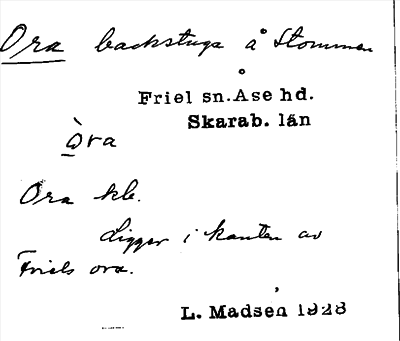 Ora backstuga å Stommen
Friel sn. Åse hd.
Skarab. län
òra
Ora kle.
Ligger i kanten av
Friels ora.
L. Madsen 1928